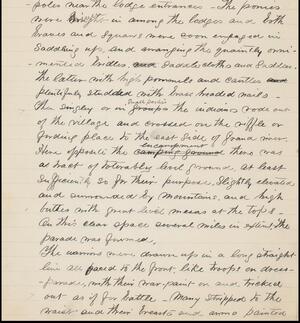 poles near the lodge entrances - The ponies
were brought in among the lodges and both
braves and squaws were soon engaged in
saddling up, and arranging the quaintly orni-
mented bridles, and saddlecloths and saddles.
the latter with high pommels and cantles and
plentifully studded with brass headed nails -
single parties
Then singly or in groups the indians rode out
of the village and crossed on the riffle or
fording place to the east side of Grand river.
encampment
Here opposite the camping ground there was
a tract of tolerably level ground at least
sufficiently so for their purpose, slightly elevated
and surrounded by mountains, and high
buttes with great level mesas at the tops -
On this clear space several miles in extent the
parade was formed.
The warriors were drawn up in a long straight
line all faced to the front, like troops on dress-
parade, with their war paint on and tricked
out as if for battle - Many stripped to the
waist and their breasts and arms painted